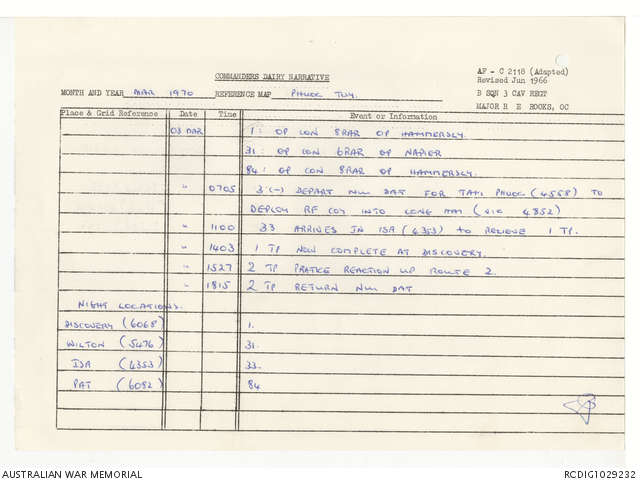 COMMANDERS DAIRY NARRATIVE
AF - C 2118 (Adapted)
Revised Jun 1966
MONTH AND YEAR MAR 1970 REFERENCE MAP PHUOC TUY. B SQN 3 CAV REGT
MAJOR R E ROOKS, OC
Place & Grid Reference Date Time Event or Information
03 MAR 1: OP CON 8RAR OP HAMMERSLY.
31: OP CON 6RAR OP NAPIER
84: OP CON 8RAR OP HAMMERSLY.
" 0705 3(-) DEPART NUI DAT FOR TAM PHUOC (4558) TO
DEPLOY RF COY INTO LONG MY (VIC 4852)
" 1100 33 ARRIVES IN IDA (4353) TO RELIEVE 1 TP.
" 1403 1 TP NOW COMPLETE AT DISCOVERY.
" 1527 2 TP PRATICE REACTION UP ROUTE 2.
" 1815 2 TP RETURN NUI DAT
NIGHT LOCATIONS.
DISCOVERY (6068) 1.
WILTON (5476) 31.
IDA (4353) 33.
PAT (6082) 84
AUSTRALIAN WAR MEMORIAL RCDIG1029232